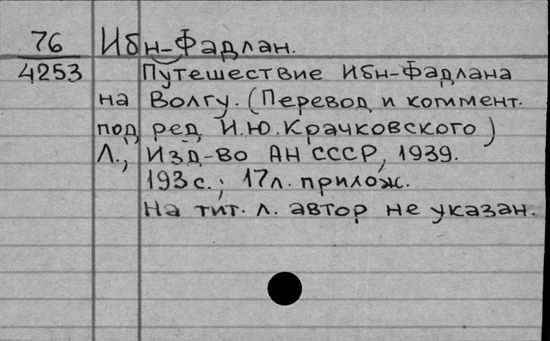 76 Ибн-Фадлан.
4253 Путешествие Ибн-Фадлана
на Волгу. (Перевод и коммент.
под ред. И.Ю. Крачковского)
Л., Изд-во АН СССР, 1939.
193 с.; 17 л. прилож.
На тит. л. автор не указан.